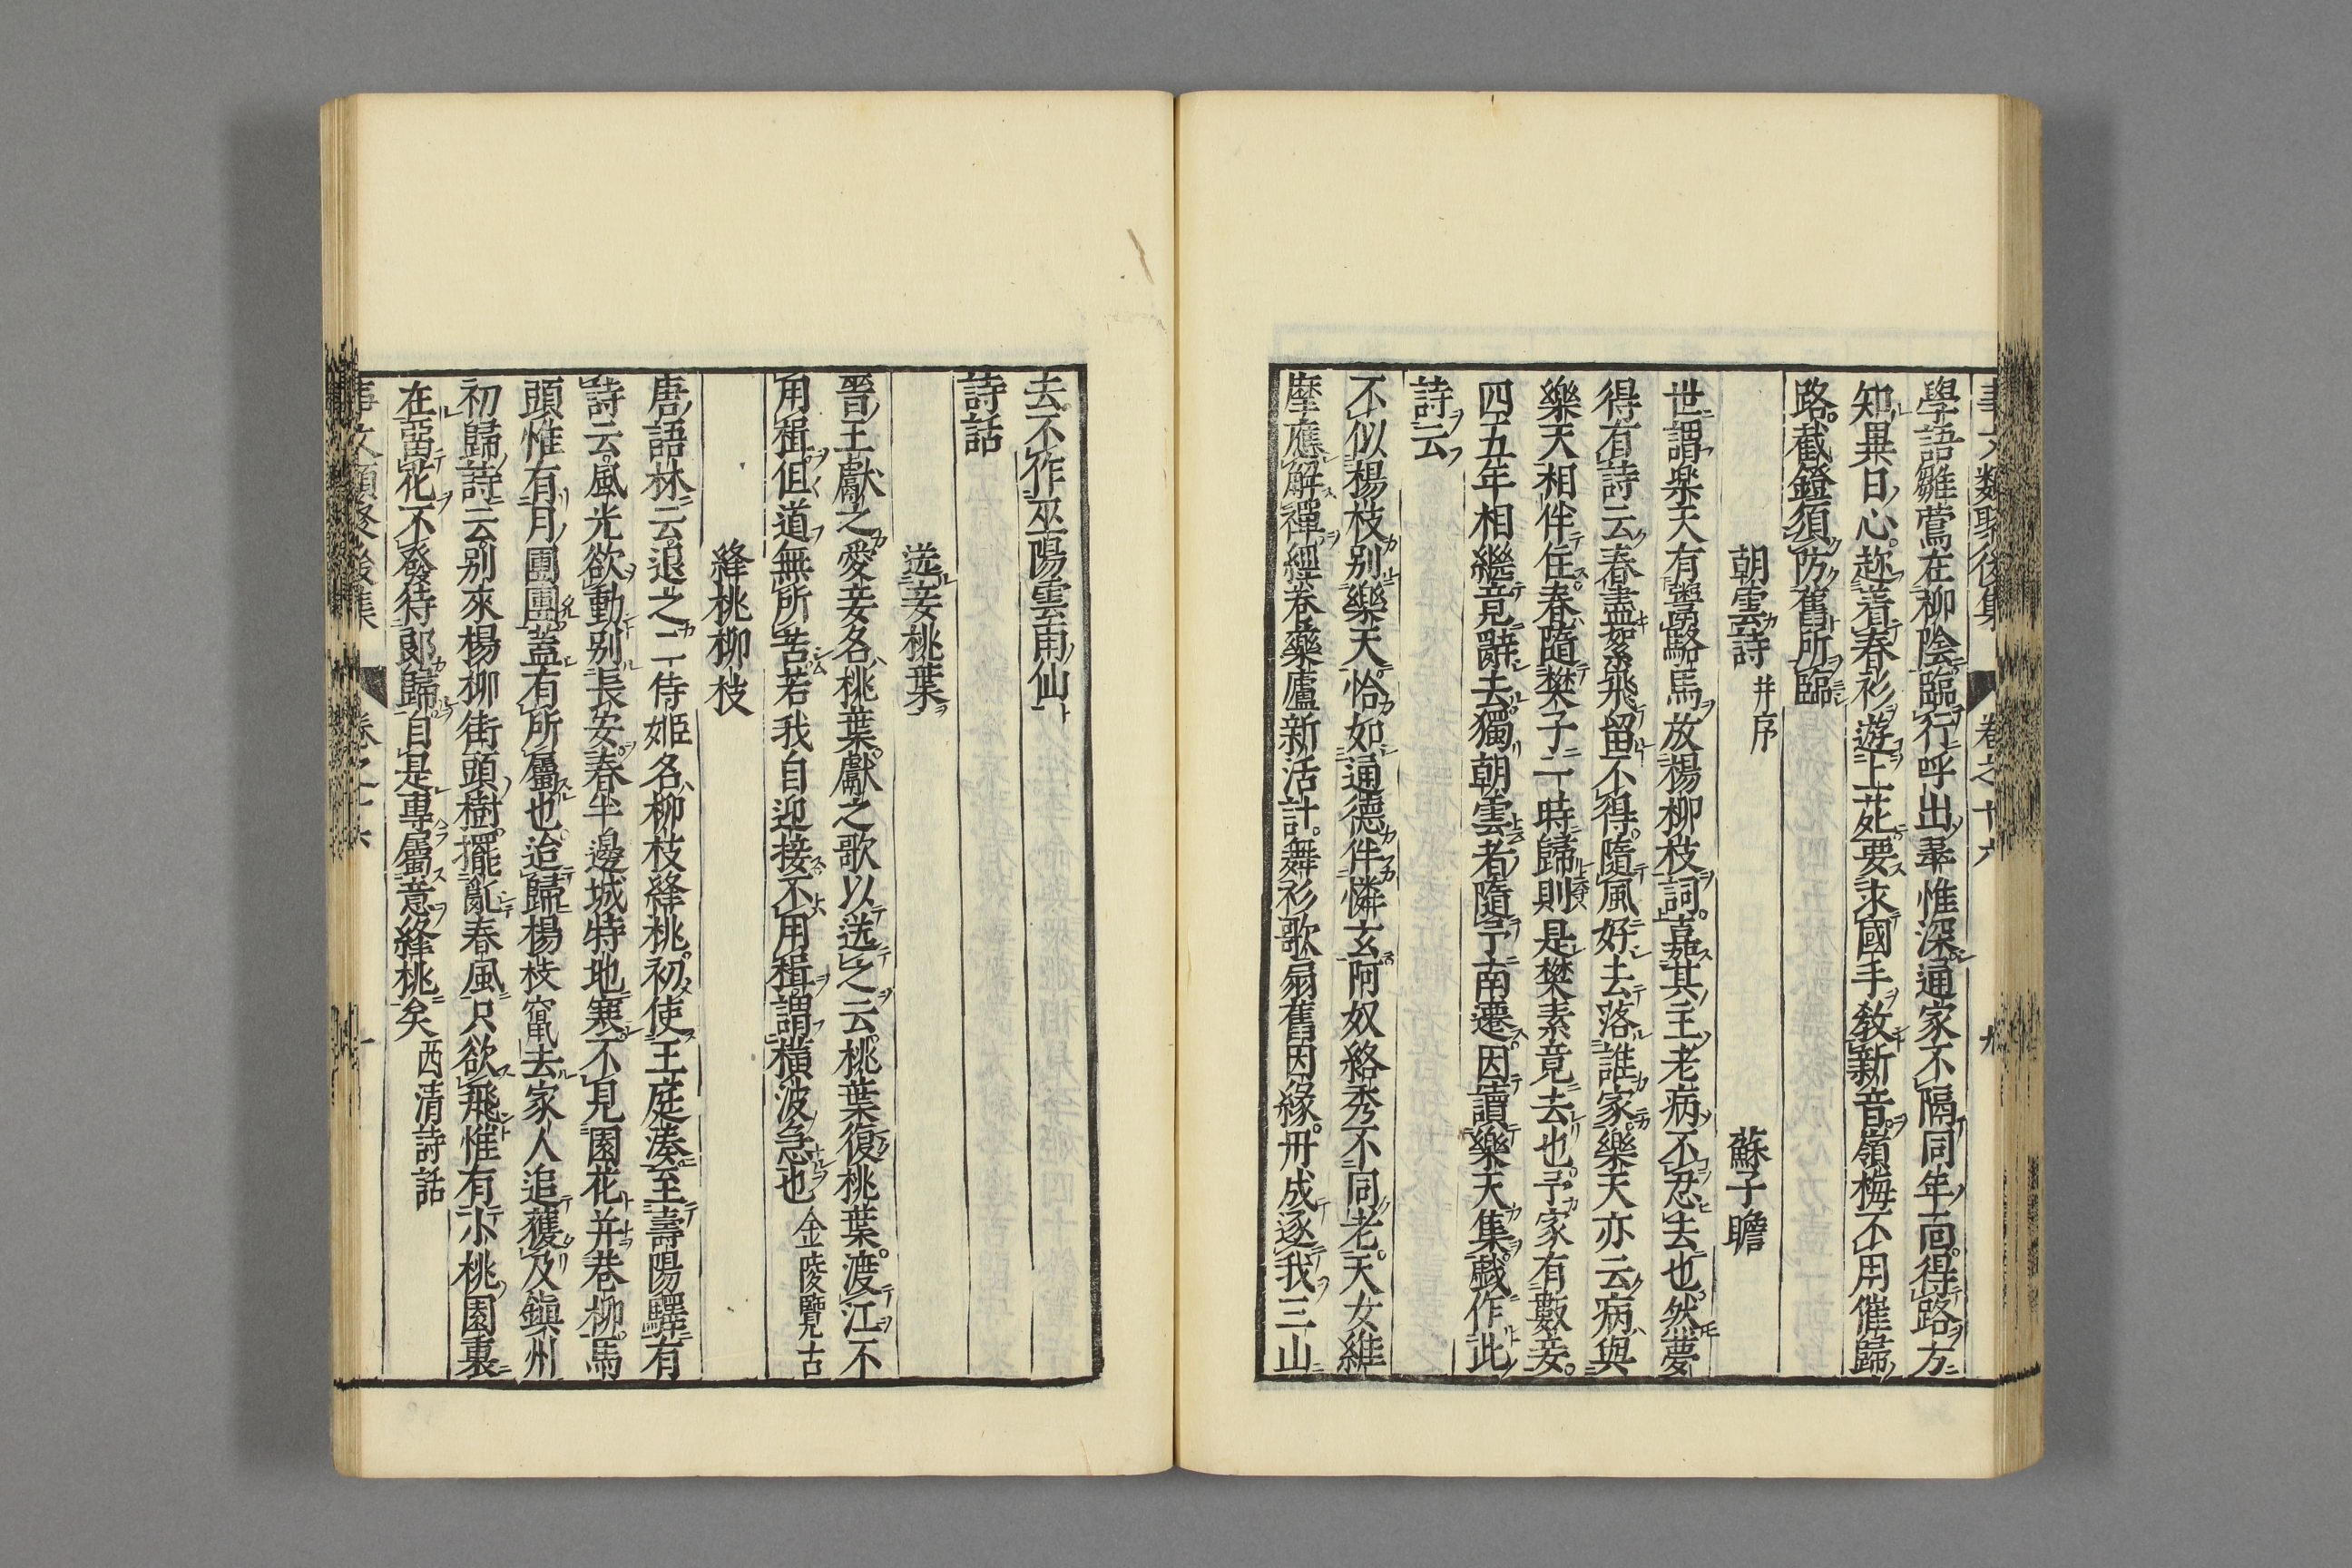 事文類聚後集 卷之十六 九
學語雛鶯在柳陰臨行呼出畢惟深通家不隔同年面得路方
知異日心趂着春衫遊上苑要求國手敎新音嶺梅不用催歸
路截鐙須防舊所臨
朝雲詩 并序 蘇子瞻
世謂楽天有鬻駱馬放楊柳枝詞嘉其主老病不忍去也然夢
得有詩云春盡絮飛留不得隨風好去落誰家樂天亦云病與
樂天相伴住春隨樊子一時歸則是樊素竟去也予家有數妾
四五年相繼竟辭去獨朝雲者隨予南遷因讀樂天集戯作此
詩云
不似楊枝别樂天恰如通德伴憐玄阿奴絡秀不同老天女維
摩應解禪經卷藥廬新活計舞衫歌扇舊因緣丹成逐我三山
去不作巫陽雲雨仙
詩話
送妾桃葉
晉王獻之愛妾名桃葉獻之歌以送之云桃葉復桃葉渡江不
用楫但道無所苦若我自迎接不用楫謂横波急也 金陵覽古
絳桃柳枝
唐語林云退之二侍姬名柳枝絳桃初使王庭湊至壽陽驛有
詩云風光欲動别長安春半邊城特地寒不見園花并巷柳馬
頭惟有月團團蓋有所屬也迨歸楊枝竄去家人追獲及鎭州
初歸詩云别來楊柳街頭樹擺亂春風只欲飛惟有小桃園裏
在畱花不發待郞歸自是專屬意絳桃矣 西清詩話
事文類聚後集 卷之十六